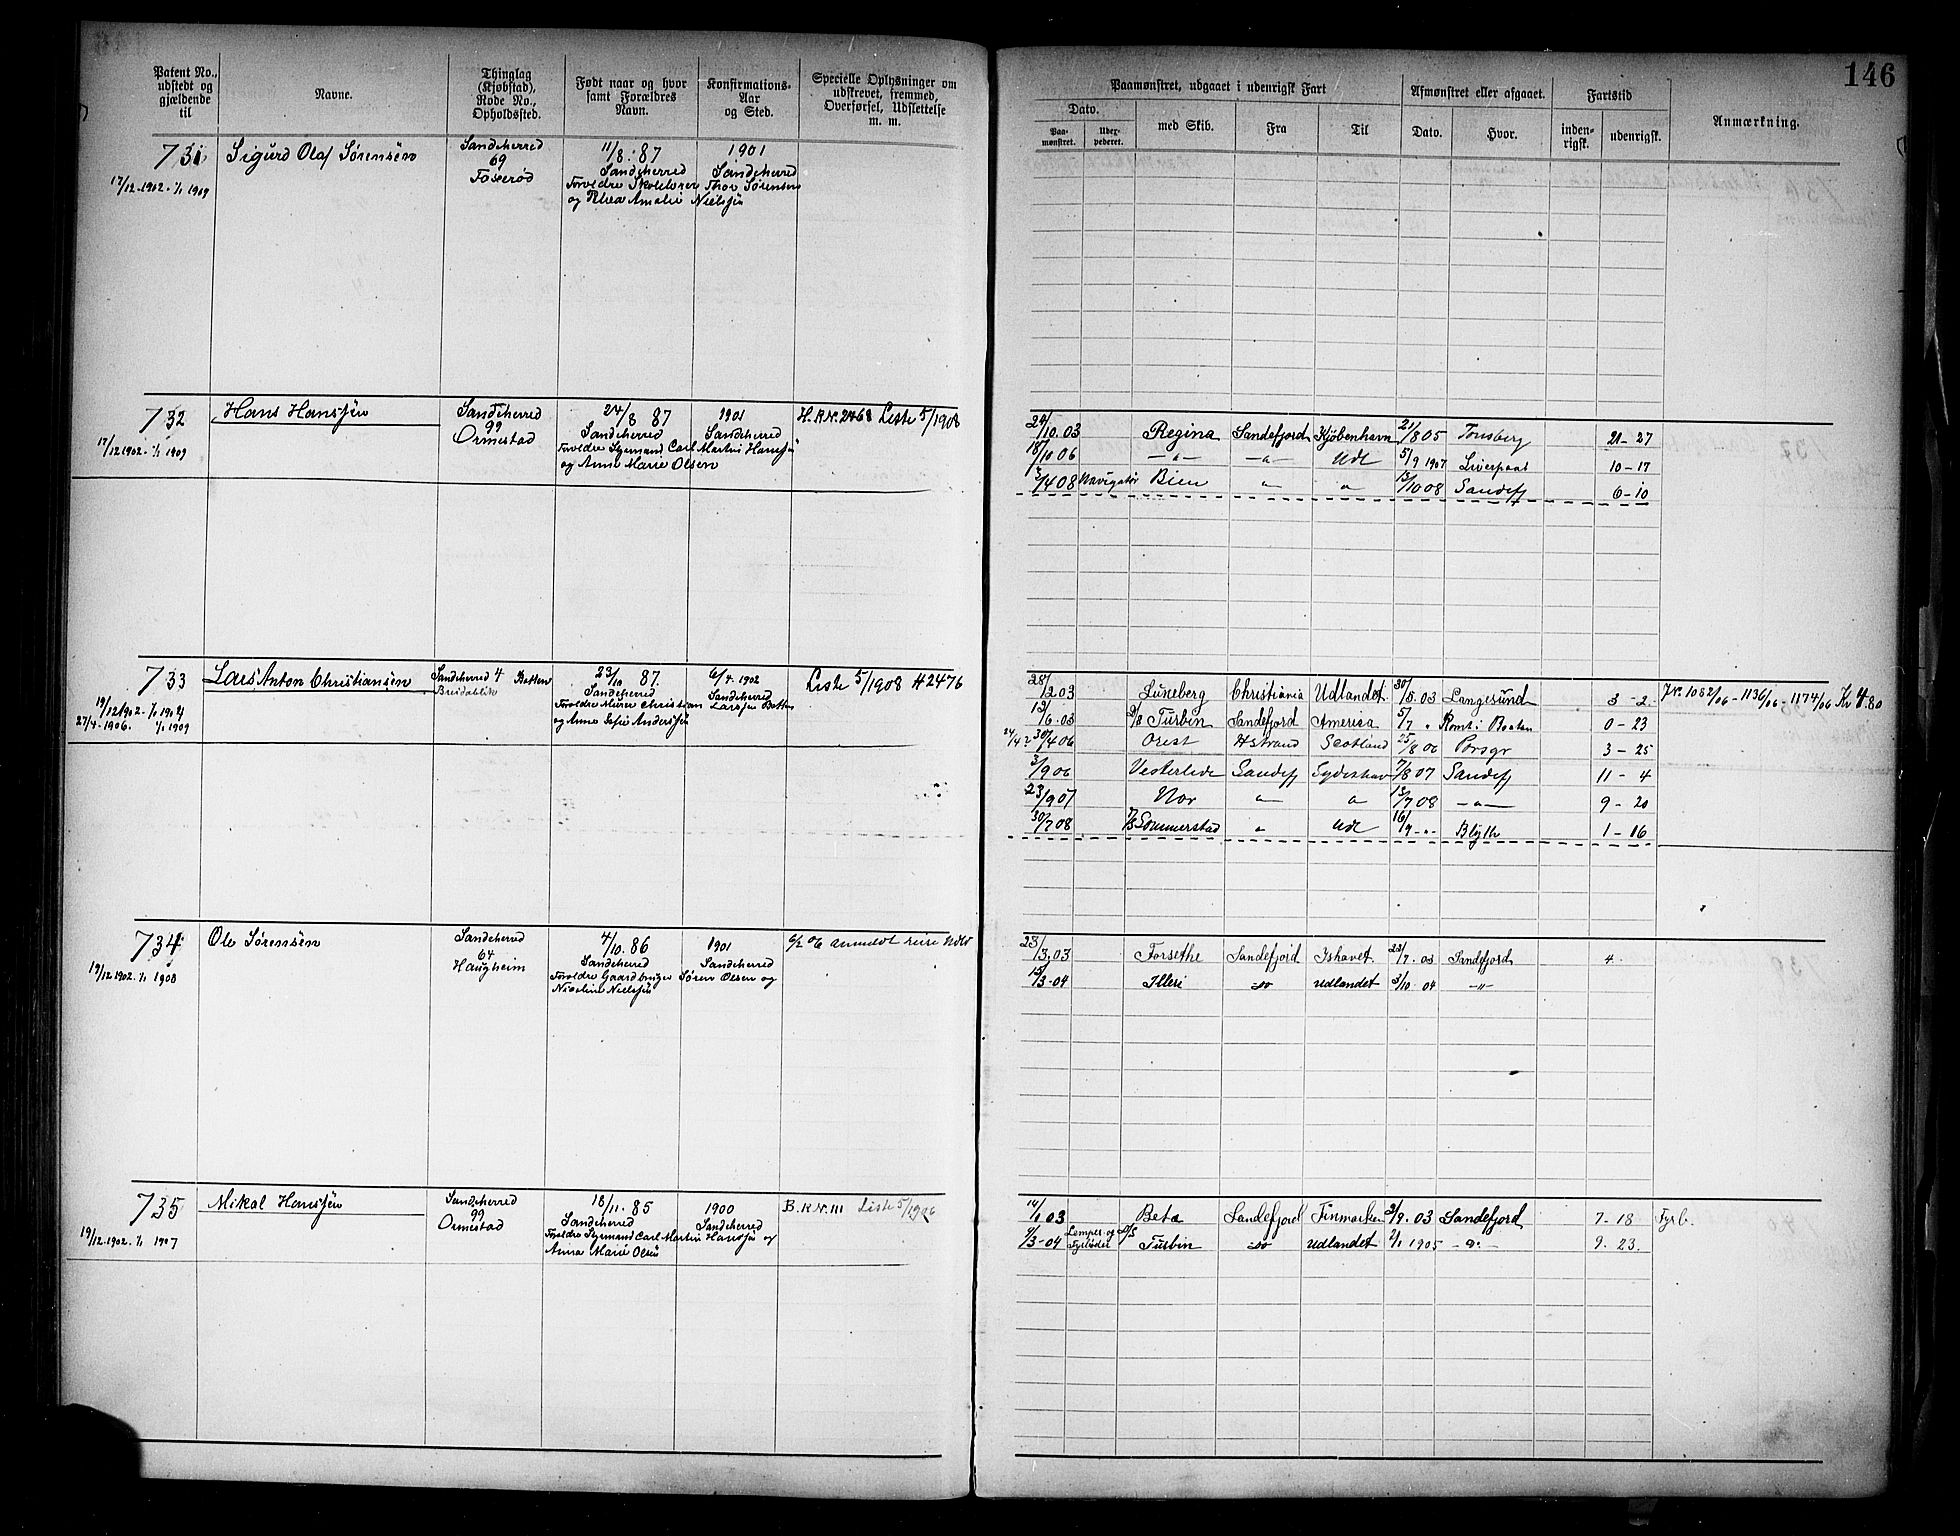 146
Patent No., udstedt og gjældende til
Navne.
Thinglag (Kjøbstad), Rode No., Opholdssted.
Født naar og hvor samt Forældres Navn.
Konfirmations-Aar og Sted.
Specielle Oplysninger om udskrevet, fremmed, Overførsel, Udslettelse m. m.
Paamønstret, udgaaet i udenrigsk Fart
Dato.
Paa-mønstret.
Uder-pederet.
med Skib.
Fra
Til
Afmønstret eller afgaaet.
Dato.
Hvor.
Fartstid
inden-rigsk.
udenrigsk.
Anmærkning.
731 Sigurd Olaf Sørensen Sandeherred 11/8. 87 1901
69 Sandeherred Sandeherred
17/12.1902. 1/1 1909 Foserød Forældre Skolelærer Thov Sørensen
og Thea Amalie Nielsen
732 Hans Hansen Sandeherred 24/8 87 1901 H.R.Nr. 2468 Liste 5/1908
99 Sandeherred Sandeherred
17/12.1902. 1/1 1909 Ormestad Forældre Sjømand Carl Martin Hansen
og Anna Marie Olsen
24/10.03 Regina Sandefjord Kjøbenhavn 21/8 05 Tønsberg 21-27
18/10 06 -"- -"- Udl 5/9 1907 Liverpool 10-17
3/4 08 Navigatør Bien " " 13/10 08 Sandefj 6-10
733 Lars Anton Christiansen Sandeherred 4 Botten 23/10 87. 6/4. 1902 Liste 5/1908 H 2476
Breidablik Sandeherred Sandeherred
19/12.1902. 1/1 1904 Forældre Murer Christian Larsen Botten
27/4.1906. 1/1 1909 og Anna Sofie Andersen
28/2 03 Luneberg Christiania Udlandet 30/5. 03 Langesund 3-2. JNr. 1082/06 - 1136/06 - 1174/06 Kr 4.80
13/6.03 Turbin Sandefjord America 5/7 " Rømt i Boston 0-23
30/4 06 Orest Hstrand Scotland 25/8 06 Porsgr 3-25
3/9 06 Vesterlide Sandefj Sydishav 7/8 07 Sandefj 11-4
23/9 07 Nor " " 13/7 08 -"- 9-20
30/7 08 Sommerstad " Udl 16/9 " Blyth 1-16
734 Ole Sørensen Sandeherred 4/10. 86 1901 6/2 06 anmeldt reise Udld
64 Sandeherred Sandeherred
19/12.1902. 1/1 1908 Haugheim Forældre Gaardbruger Søren Olsen og
Nicoline Nielsen
23/3.03 Forsethe Sandefjord Ishavet 23/7. 03 Sandefjord 4
15/3-04 Illeri do Udlandet 3/10 04 -"-
735 Mikal Hansen Sandeherred 18/11. 85 1900 B.R.Nr. 111 Liste 5/1906
99 Sandeherred Sandeherred
19/12.1902. 1/1 1907 Ormestad Forældre Sjømand Carl Martin Hansen og
Anna Marie Olsen
14/1 03 Beta Sandefjord Finmarken 2/9. 03 Sandefjord 7-18 Fyrb.
9/3-04 Lemper og Fyrbøder D/S Turbin do Udlandet 2/1 1905 -"- 9. 23.